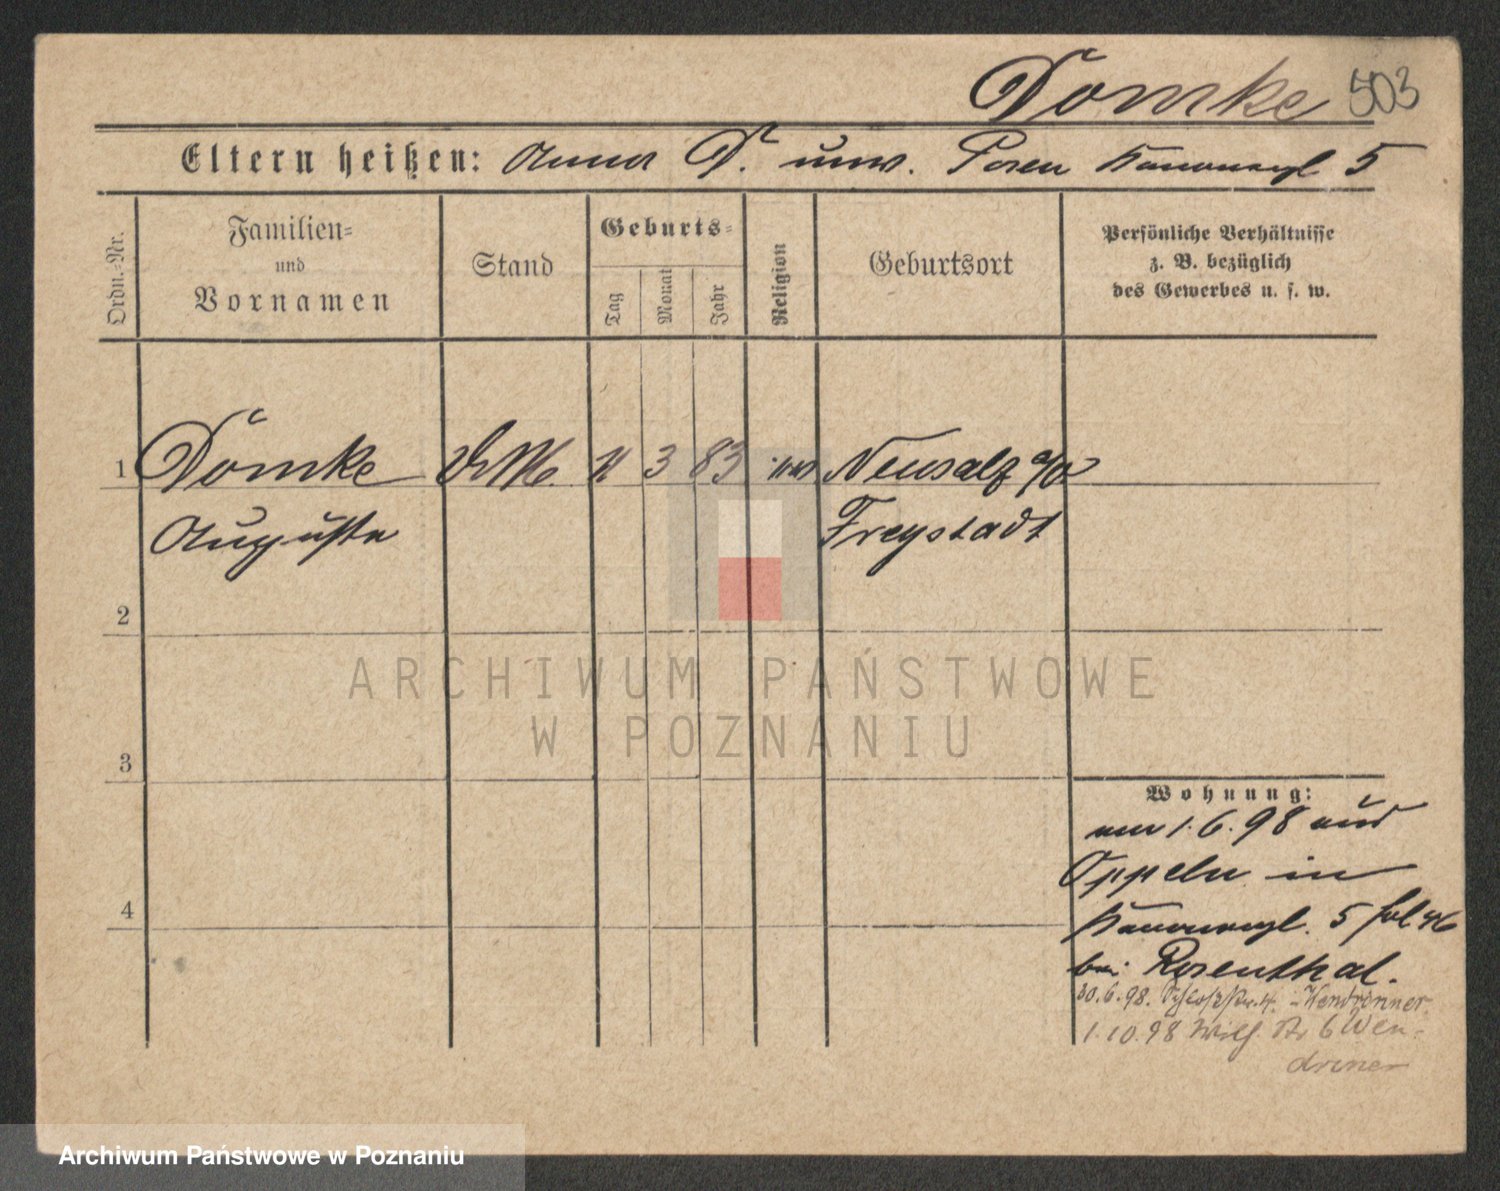 Domke 503
Eltern heißen: Anna D. unv. Posen Kanonenpl 5
Ordn.-Nr.
Familien-
und
Vornamen
Stand
Geburts-
Tag
Monat
Jahr
Religion
Geburtsort
Persönliche Verhältnisse
z. B. bezüglich
des Gewerbes u. s. w.
1 Domke 3 83 Neusalz a/O
Auguste Freystadt
2
3
4
ARCHIWUM PAŃSTWOWE
W POZNANIU
Wohnung:
am 1.6.98 aus
Oppeln in
Kanonenpl. 5 fol 46
bei Rosenthal.
30.6.98. Schloßstr. 4. - Wendriner
1.10.98 Wilh. Str 6 Wen-
driner
Archiwum Państwowe w Poznaniu